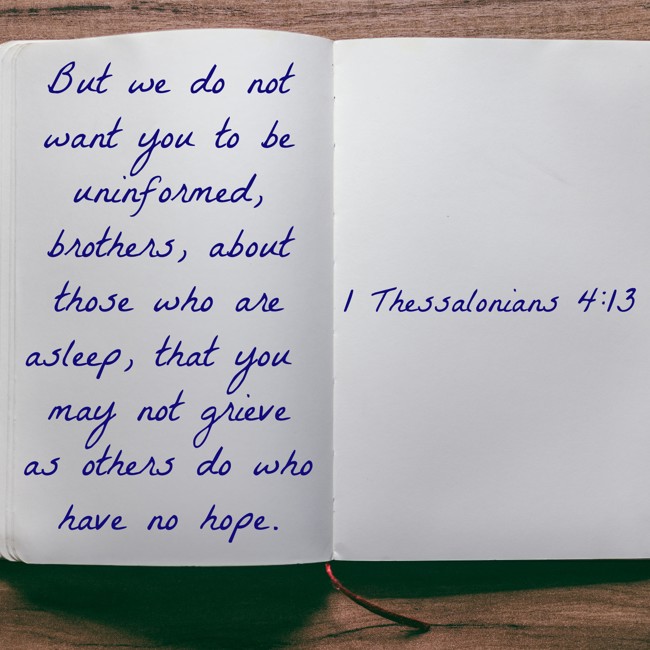 But we do not
want you to be
uninformed,
brothers, about
those who are
asleep, that you
may not grieve
as others do who
have no hope.
1 Thessalonians 4:13